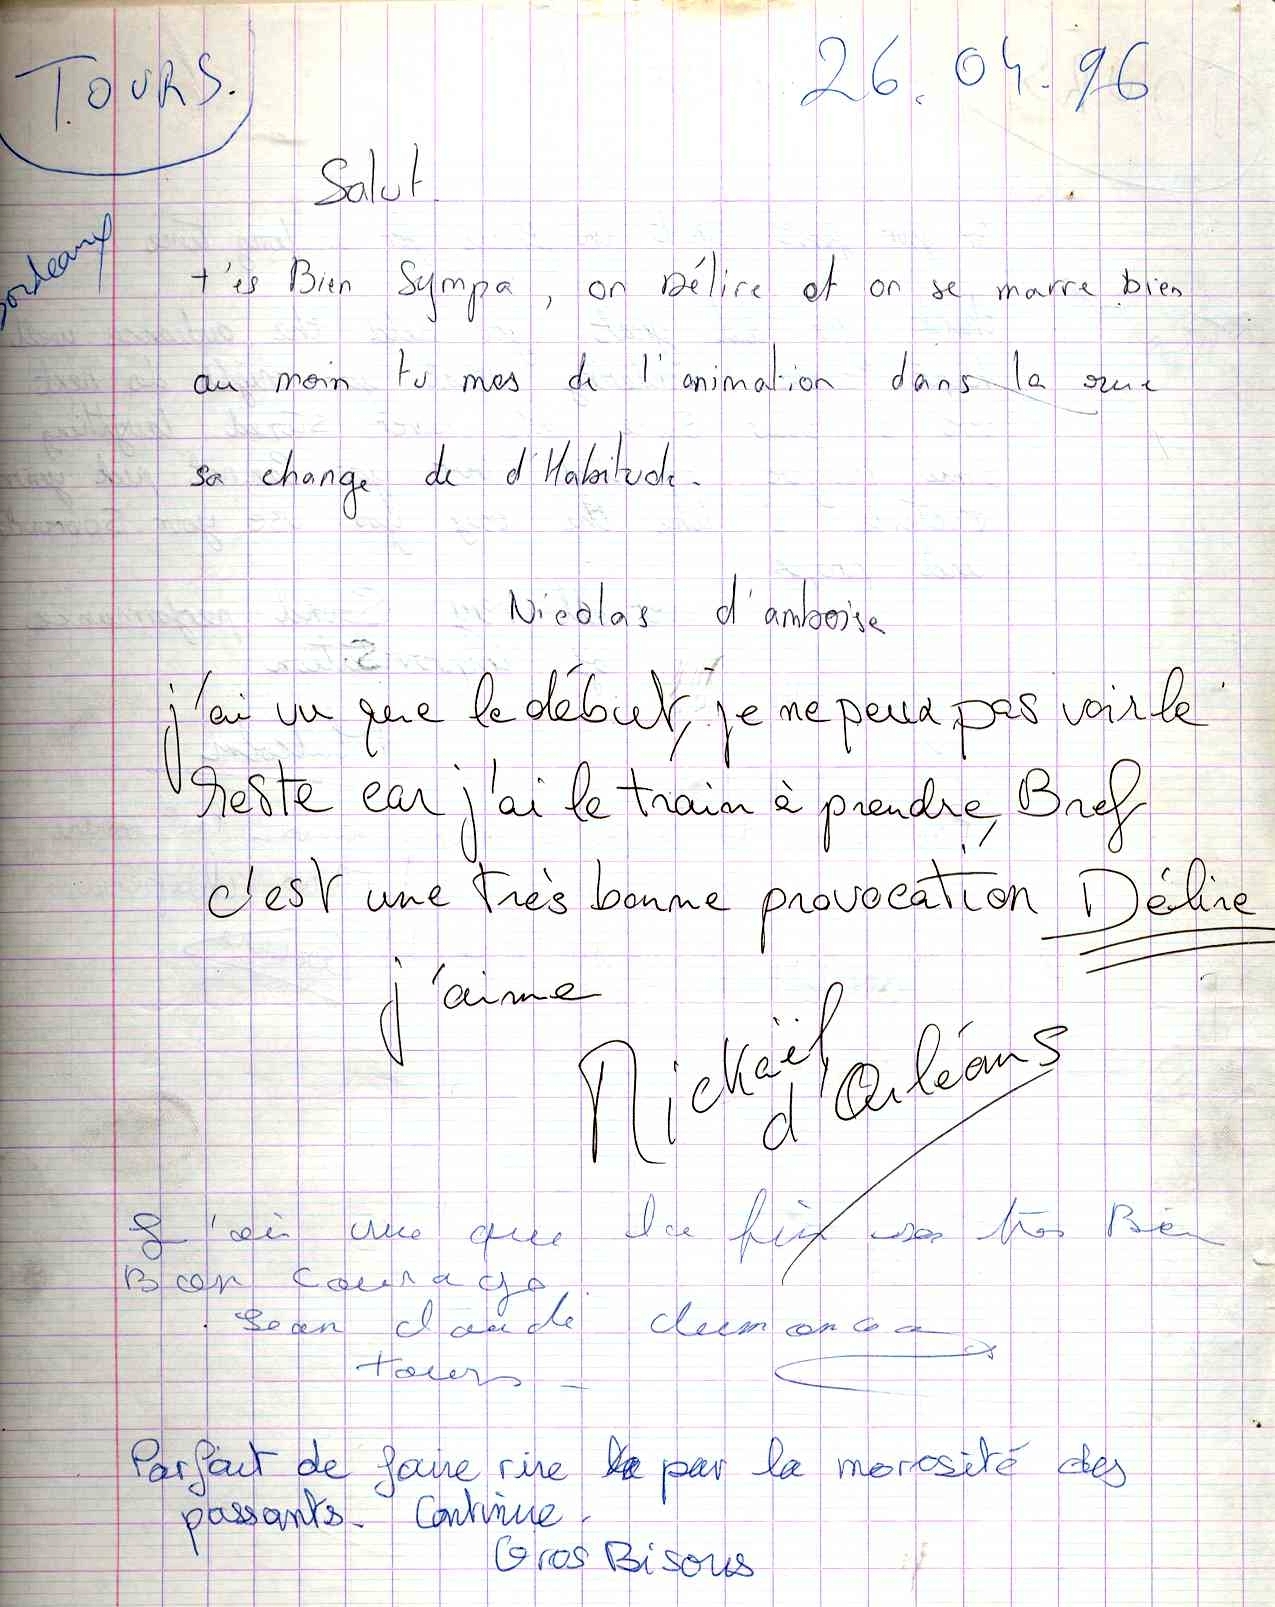 TOURS.
26.04.96
Bordeaux
Salut
t'es Bien Sympa, on Délire et on se marre bien
au moin tu mes de l'animation dans la rue
sa change de d'Habitude.
Nicolas d'amboise
j'ai vu que le début, je ne peux pas voir le
reste car j'ai le train à prendre, Bref
c'est une très bonne provocation Délire
j'aime
Mickaël
d'Orléans
J'ai vue que la fin sa tres Bien
Bon courage
Jean claude
tours
Parfait de faire rire par la morosité des
passants. Continue.
Gros Bisous